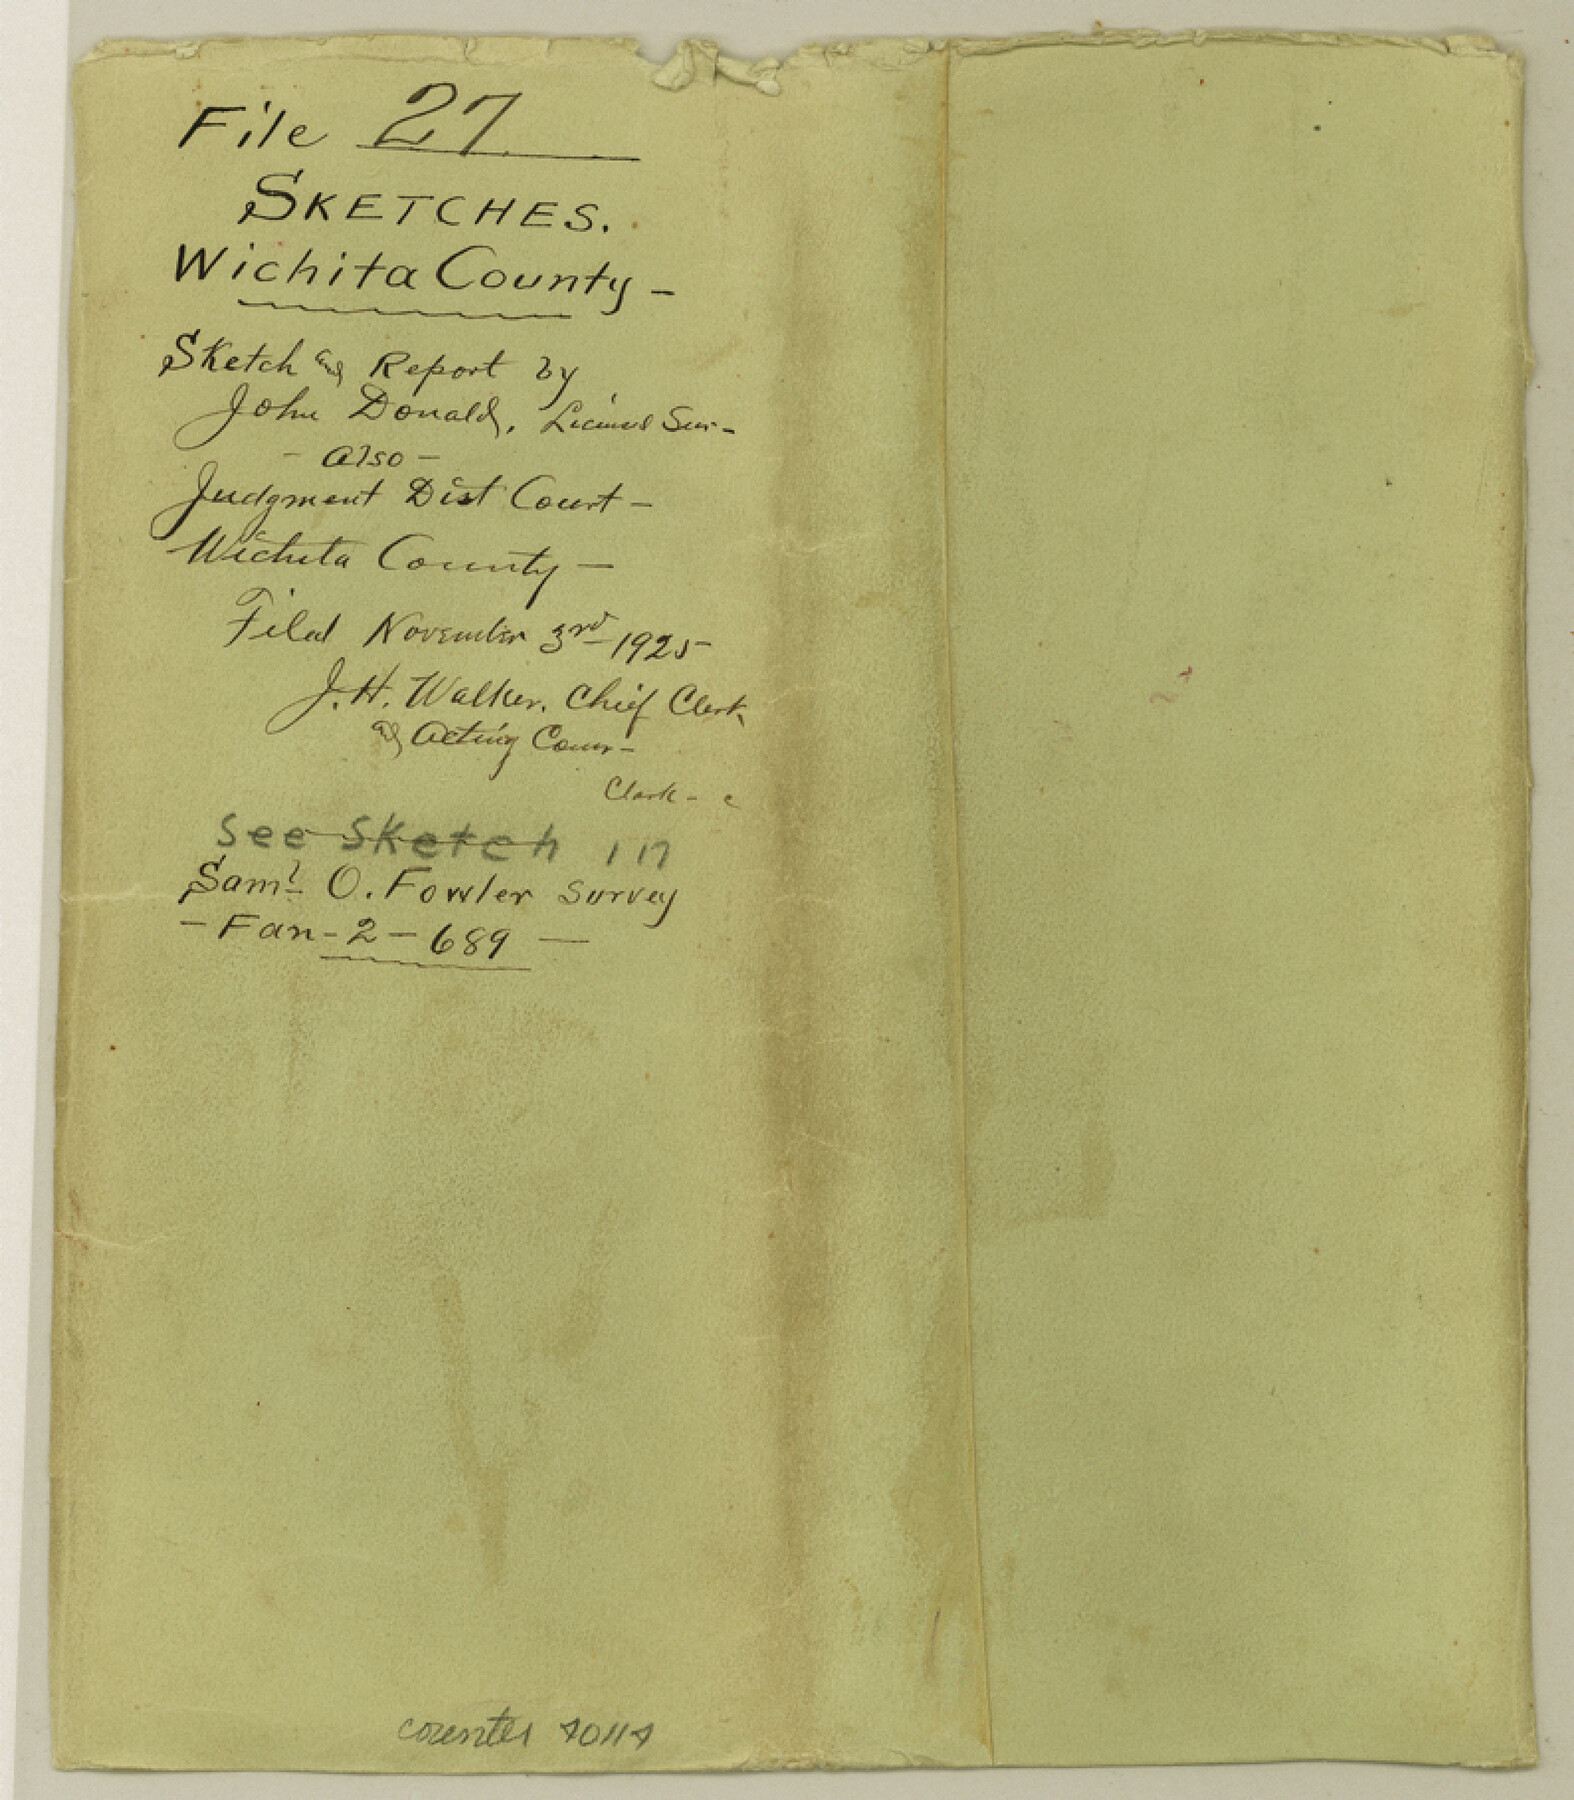 File 27
SKETCHES.
Wichita County -
Sketch and Report by
John Donald, Licensed Sur-
- Also -
Judgment Dist Court -
Wichita County -
Filed November 3rd 1925
J. H. Walker, Chief Clerk
and Acting Comr -
Clerk -
See Sketch in
Saml O. Fowler Survey
- Fan - 2 - 689 -
counter 40114